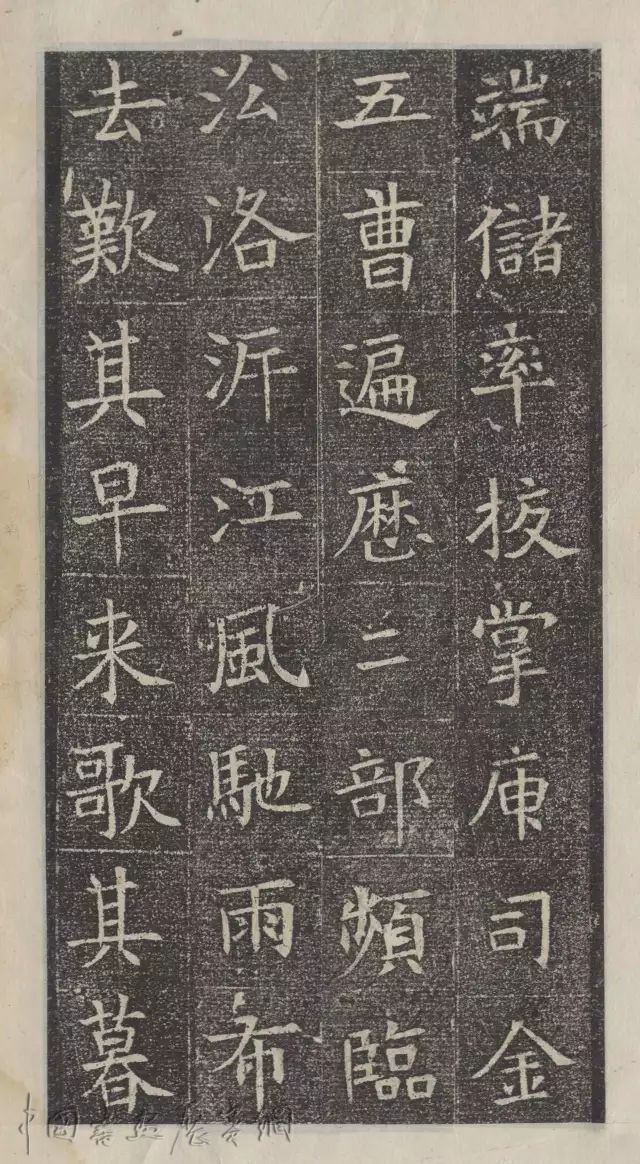 端儲率拔掌庾司金
五曹遍歷二部頻臨
㳂洛泝江風馳雨布
去歎其早来歌其暮
中国書法展賞網